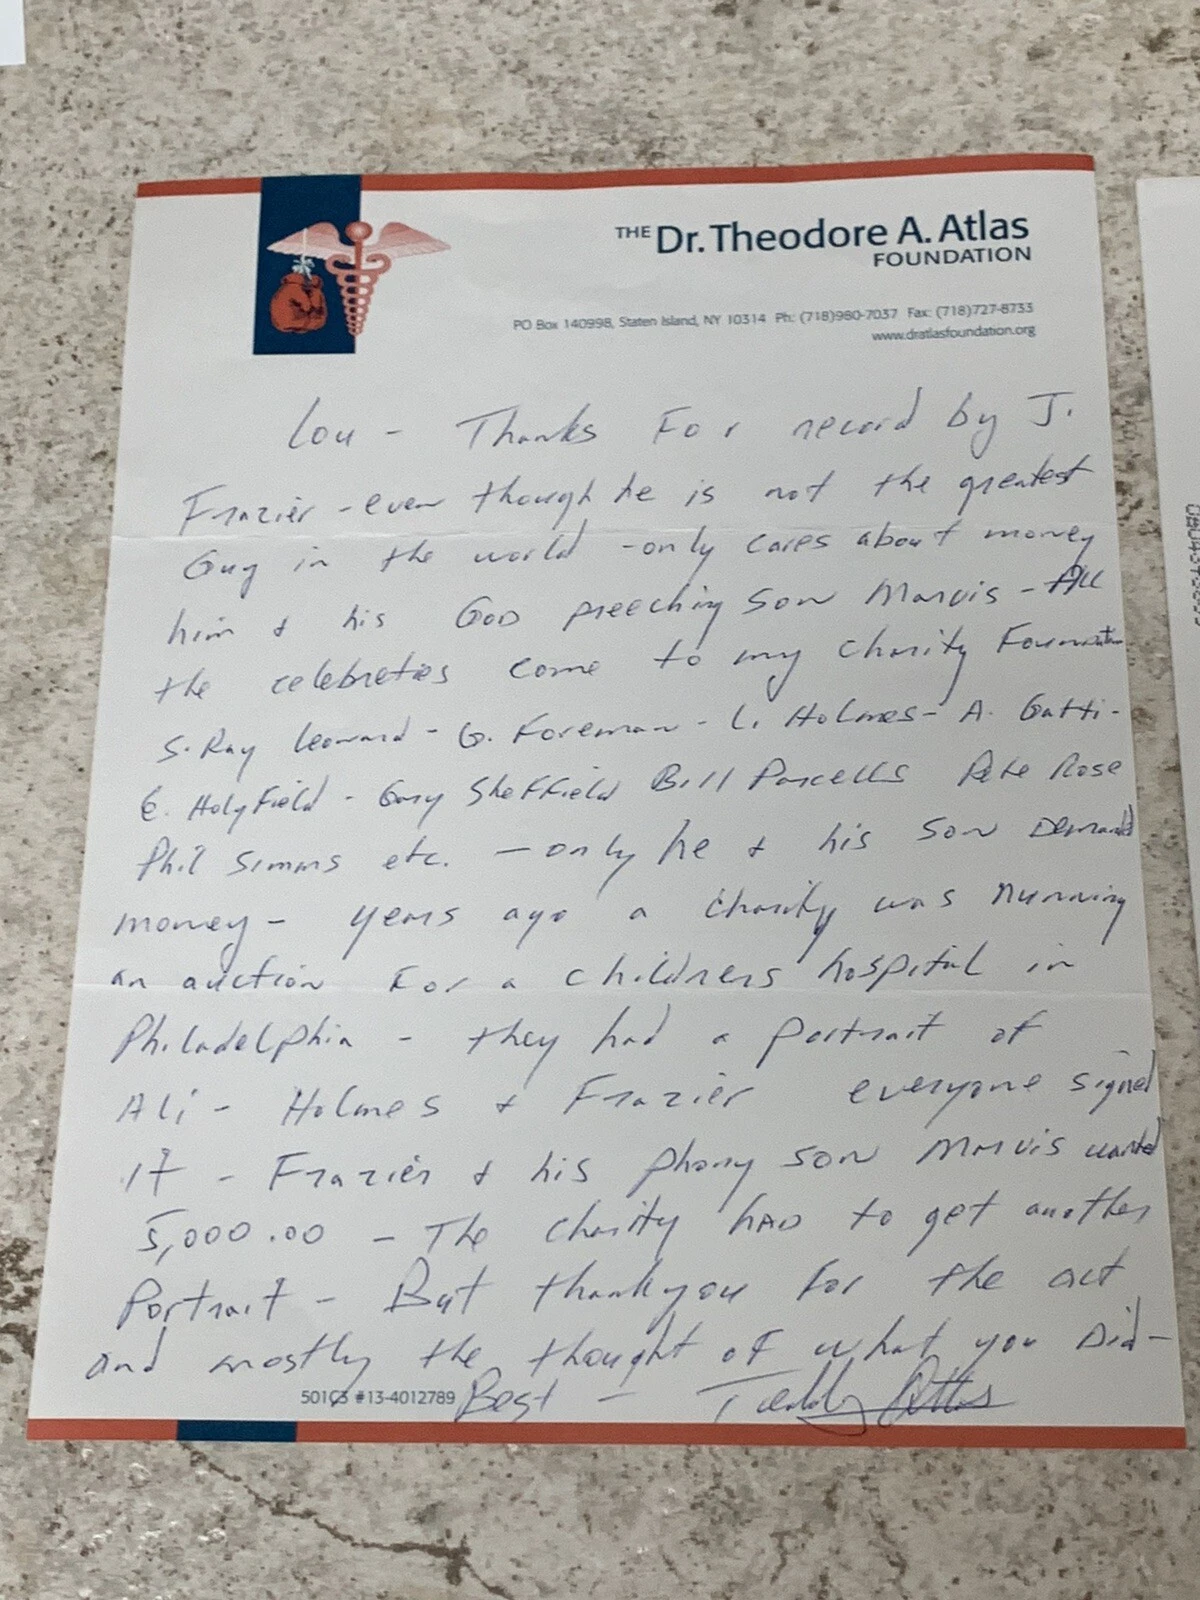 THE Dr. Theodore A. Atlas
FOUNDATION
PO Box 140998, Staten Island, NY 10314 Ph: (718)980-7037 Fax: (718)727-8733
www.dratlasfoundation.org
Lou - Thanks For record by J.
Frazier - even though he is not the greatest
Guy in the world - only cares about money
him & his GOD preeching son Marvis - All
the celebreties come to my charity Foundation
S. Ray Leonard - G. Foreman - L. Holmes - A. Gatti -
E. Holyfield - Gary Sheffield Bill Parcells Pete Rose
Phil Simms etc. - only he & his son Demanded
money - years ago a charity was running
an auction For a childrens hospital in
Philadelphia - they had a portrait of
Ali - Holmes & Frazier everyone signed
it - Frazier & his phony son Marvis wanted
5,000.00 - The charity HAD to get another
Portrait - But thankyou for the act
and mostly the thought of what you Did -
Best - Teddy Atlas
501C3 #13-4012789